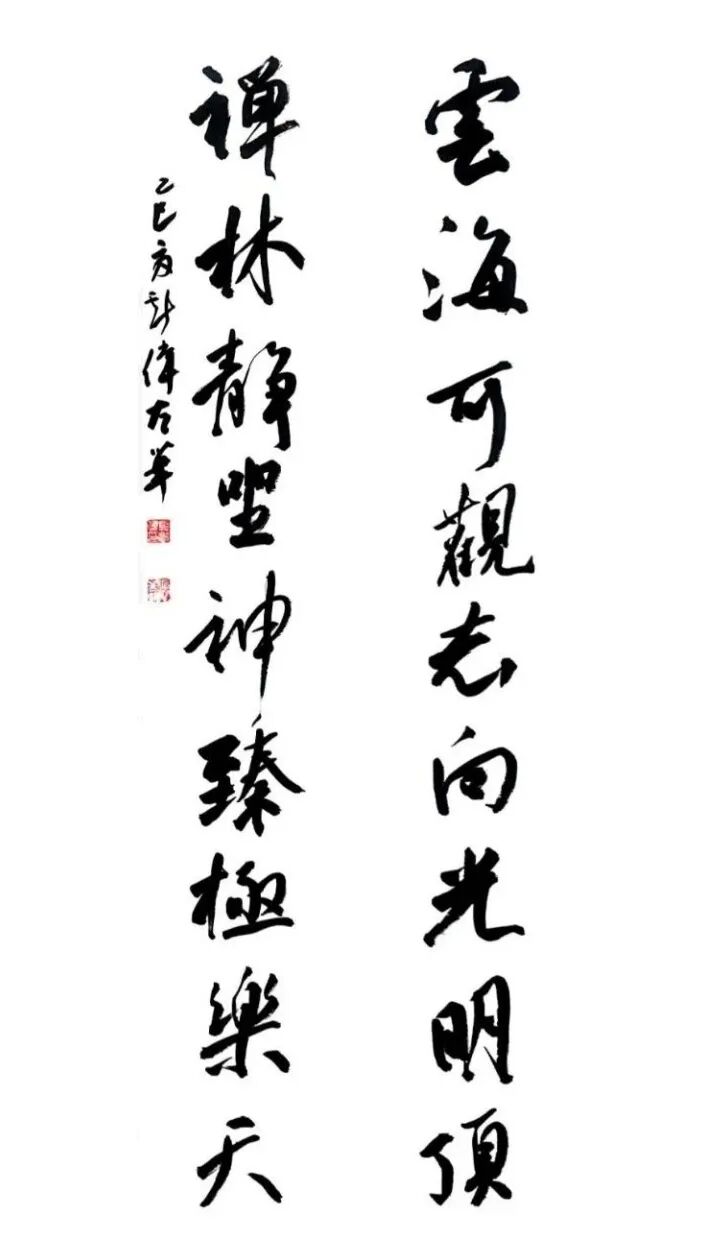 雲海可觀志向光明頂
禪林靜坐神臻極樂天
乙巳夏
偉左筆